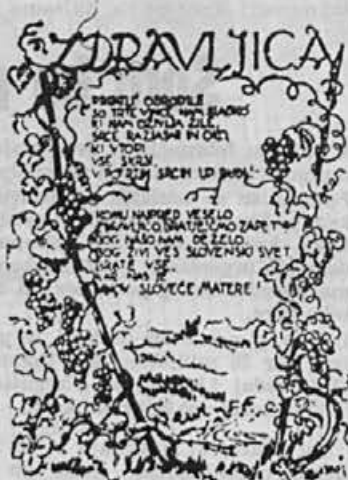 ZDRAVLJICA
OBRODILE
SO TRTE VINCE NAM SLADKO
KI NAM OŽIVLJA ŽILE
SRCE RAZJASNI IN OKO
KI VTOPI
VSE SKRBI
V POTRTIH SRCIH UP BUDI!
KOMU NAJPRED VESELO
BRATJE ČMO ZAPET'
BOG NAŠO NAM DEŽELO
BOG ŽIVI VES SLOVENSKI SVET
BRATE VSE
KAR NAS JE
SLOVEČE MATERE!